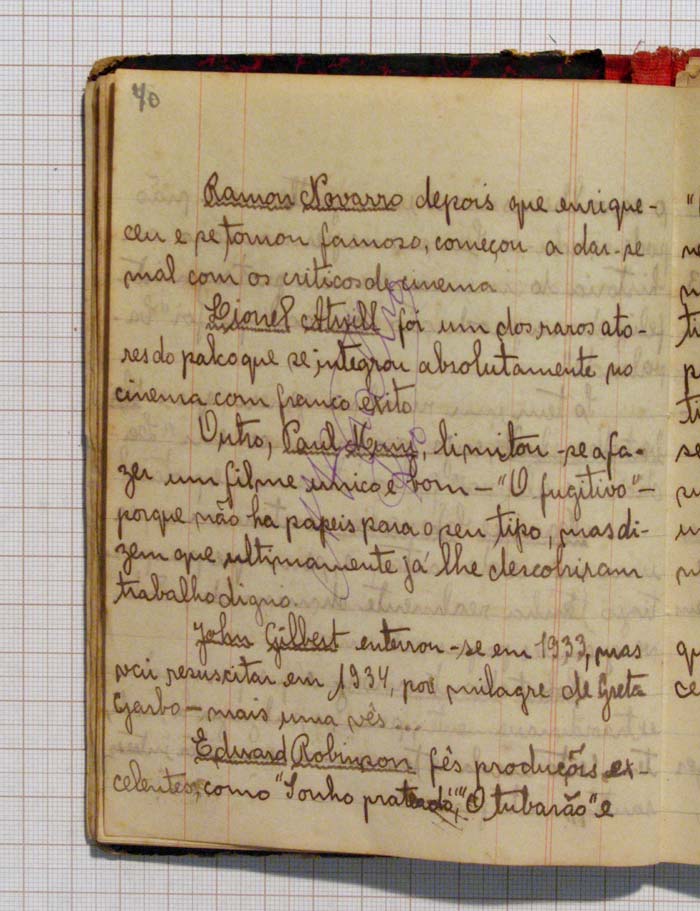 70
Ramon Novarro depois que enrique-
ceu e se tornou famoso, começou a dar-se
mal com os criticos de cinema
Lionel Atwill foi um dos raros ato-
res do palco que se integrou absolutamente no
cinema com franco exito
Outro, Paul Muni, limitou-se a fa-
zer um filme unico e bom — "O fugitivo" —
porque não ha papeis para o seu tipo, mas di-
zem que ultimamente já lhe descobriram
trabalho digno.
John Gilbert enterrou-se em 1933, mas
vai resuscitar em 1934, por milagre de Greta
Garbo — mais uma vês...
Eduard Robinson fês produções ex-
celentes, como "Sonho prateado", "O tubarão" e